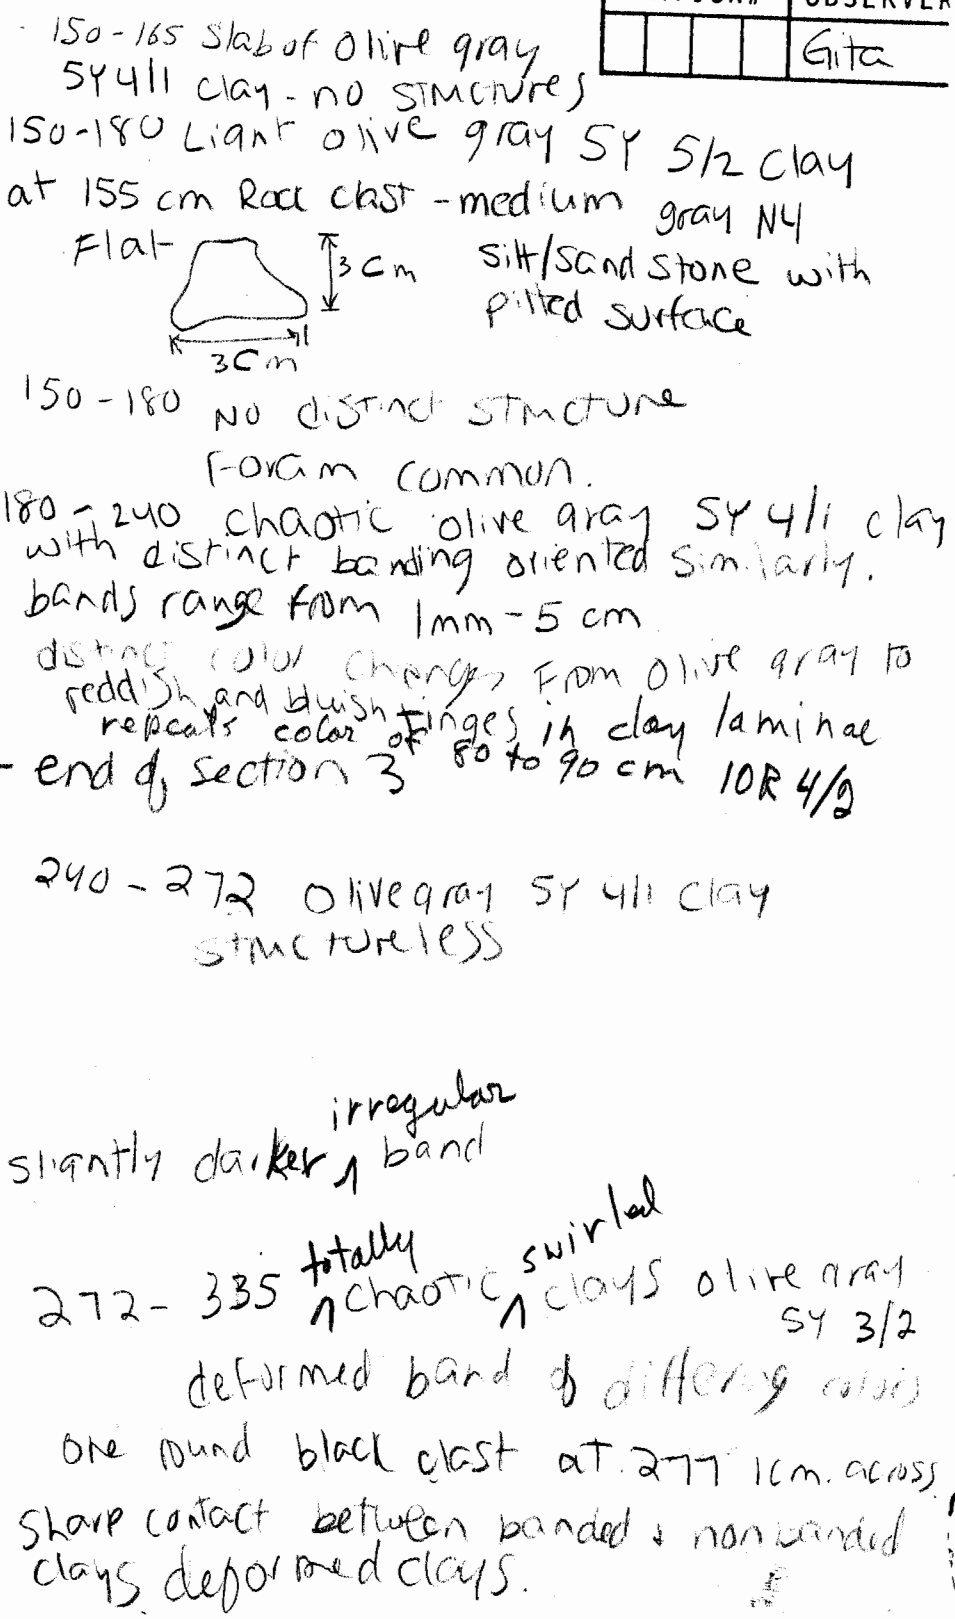 OBSERVER
Gita
150-165 Slab of Olive gray
5Y 4/1 clay - no structures
150-180 Light olive gray 5Y 5/2 Clay
at 155 cm Rock clast - medium gray N4
Flat
3 cm
silt/sand stone with
pitted surface
3 cm
150-180 No distinct structure
Foram common.
180-240 Chaotic olive gray 5Y 4/1 clay
with distinct banding oriented similarly.
bands range from 1mm-5 cm
distinct color changes from olive gray to
reddish and bluish tinges in clay laminae
repeats color of 80 to 90 cm 10R 4/2
- end of section 3
240-272 Olive gray 5Y 4/1 clay
structureless
slightly darker irregular band
272-335 totally chaotic swirled clays olive gray
5Y 3/2
deformed band of differing colors
one round black clast at 277 1cm. across
Sharp contact between banded & nonbanded
clays deformed clays.